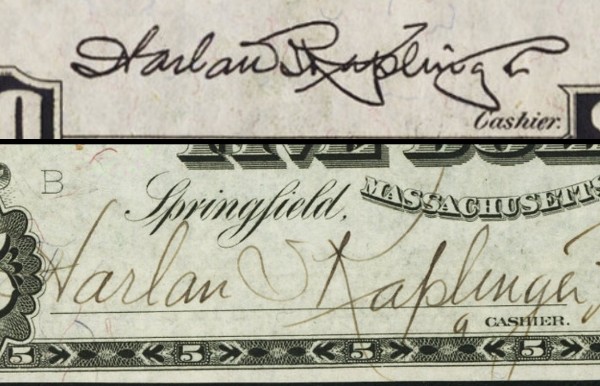 Harlan S Kaplinger
Cashier.
FIVE
B
Springfield, MASSACHUSETTS
Harlan S Kaplinger
CASHIER.
5 5 5 5